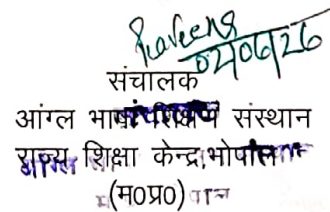 02/06/26
संचालक
आंग्ल भाषा शिक्षण संस्थान
राज्य शिक्षा केन्द्र,भोपाल
(म०प्र०)